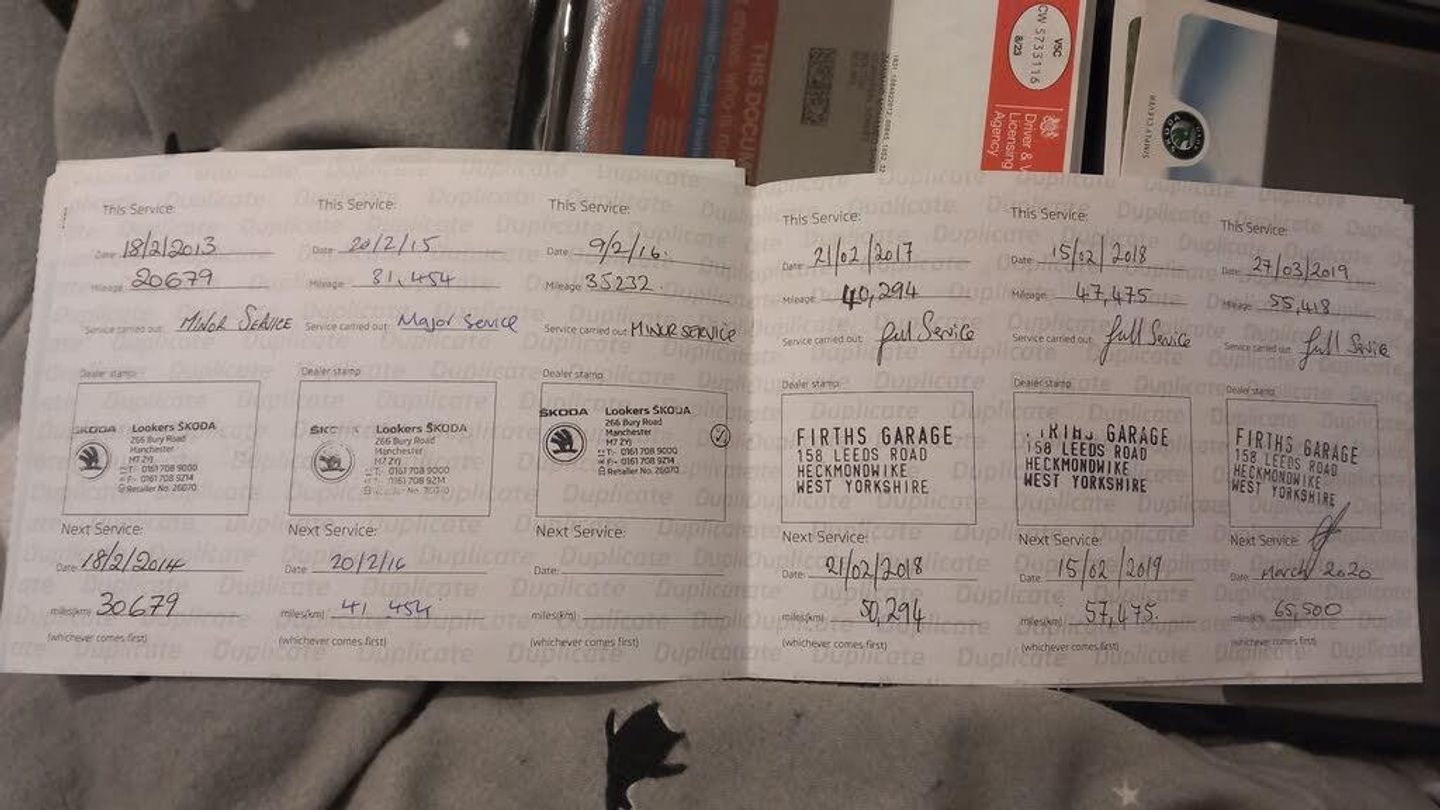 VSC
CW 5733116
8/23
Driver & V
Licensing
Agency
THIS DOCUM
SIMPLY CLEVER
This Service:
Date: 18/2/2013
Mileage: 20679
Service carried out: MINOR SERVICE
Dealer stamp
ŠKODA Lookers ŠKODA
266 Bury Road
Manchester
M7 2YJ
T:- 0161 708 9000
F:- 0161 708 9214
Retailer No. 26070
Next Service:
Date: 18/2/2014
miles(km) 30679
(whichever comes first)
This Service:
Date: 20/2/15
Mileage: 31,454
Service carried out: Major Service
Dealer stamp
Lookers ŠKODA
266 Bury Road
Manchester
M7 2YJ
T:- 0161 708 9000
0161 708 9214
Next Service:
Date: 20/2/16
miles(km) 41 454
(whichever comes first)
This Service:
Date: 9/2/16.
Mileage: 35232.
Service carried out: MINOR SERVICE
Dealer stamp
ŠKODA Lookers ŠKODA
266 Bury Road
Manchester
M7 2YJ
T:- 0161 708 9000
F:- 0161 708 9214
Retailer No. 26070
Next Service:
Date:
miles(km)
(whichever comes first)
This Service:
Date: 21/02/2017
Mileage: 40,294
Service carried out: full Service
Dealer stamp:
FIRTHS GARAGE
158 LEEDS ROAD
HECKMONDWIKE
WEST YORKSHIRE
Next Service:
Date: 21/02/2018
miles(km) 50,294
(whichever comes first)
This Service:
Date: 15/02/2018
Mileage: 47,475
Service carried out: full Service
Dealer stamp:
GARAGE
158 LEEDS ROAD
HECKMONDWIKE
WEST YORKSHIRE
Next Service:
Date: 15/02/2019
miles(km) 57,475.
(whichever comes first)
This Service:
Date: 27/03/2019
Mileage: 55,418
Service carried out: full Service
Dealer stamp:
FIRTHS GARAGE
158 LEEDS ROAD
HECKMONDWIKE
WEST YORKSHIRE
Next Service:
Date: March 2020
miles(km) 65,500
(whichever comes first)
Duplicate